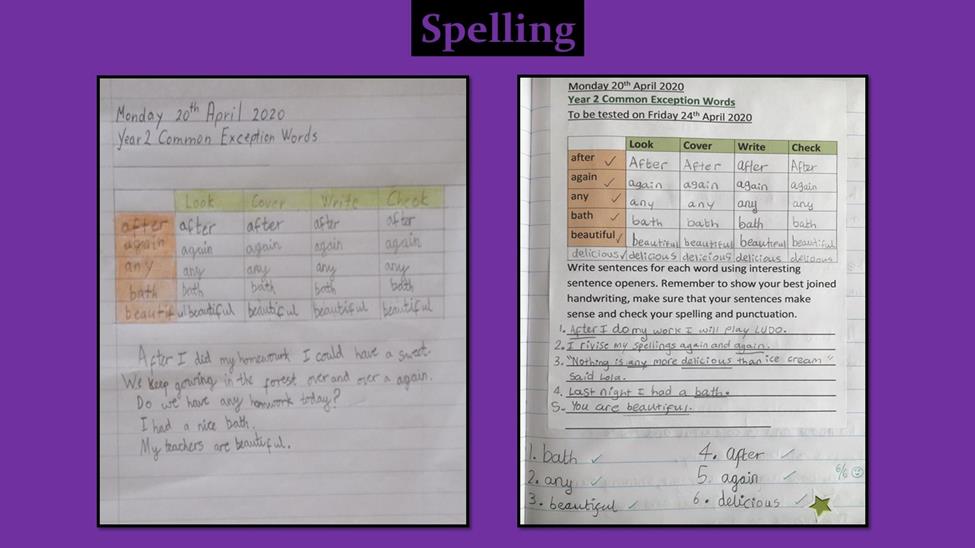 Spelling
Monday 20th April 2020
Year 2 Common Exception Words
Look Cover Write Check
after after after after after
again again again again again
any any any any any
bath bath bath bath bath
beautiful beautiful beautiful beautiful beautiful
After I did my homework I could have a sweet.
We keep gowing in the forest over and over a again.
Do we have any homwork today?
I had a nice bath.
My teachers are beautiful.
Monday 20th April 2020
Year 2 Common Exception Words
To be tested on Friday 24th April 2020
Look Cover Write Check
after ✓ After After after After
again ✓ again again again again
any ✓ any any any any
bath ✓ bath bath bath bath
beautiful ✓ beautiful beautiful beautiful beautiful
delicious ✓ delicious delicious delicious delicious
Write sentences for each word using interesting
sentence openers. Remember to show your best joined
handwriting, make sure that your sentences make
sense and check your spelling and punctuation.
1. After I do my work I will play LUDO.
2. I rivise my spellings again and again.
3. "Nothing is any more delicious than ice cream"
said Lola.
4. Last night I had a bath.
5. You are beautiful.
1. bath ✓ 4. after ✓
2. any ✓ 5. again ✓ 6/6
3. beautiful ✓ 6. delicious ✓